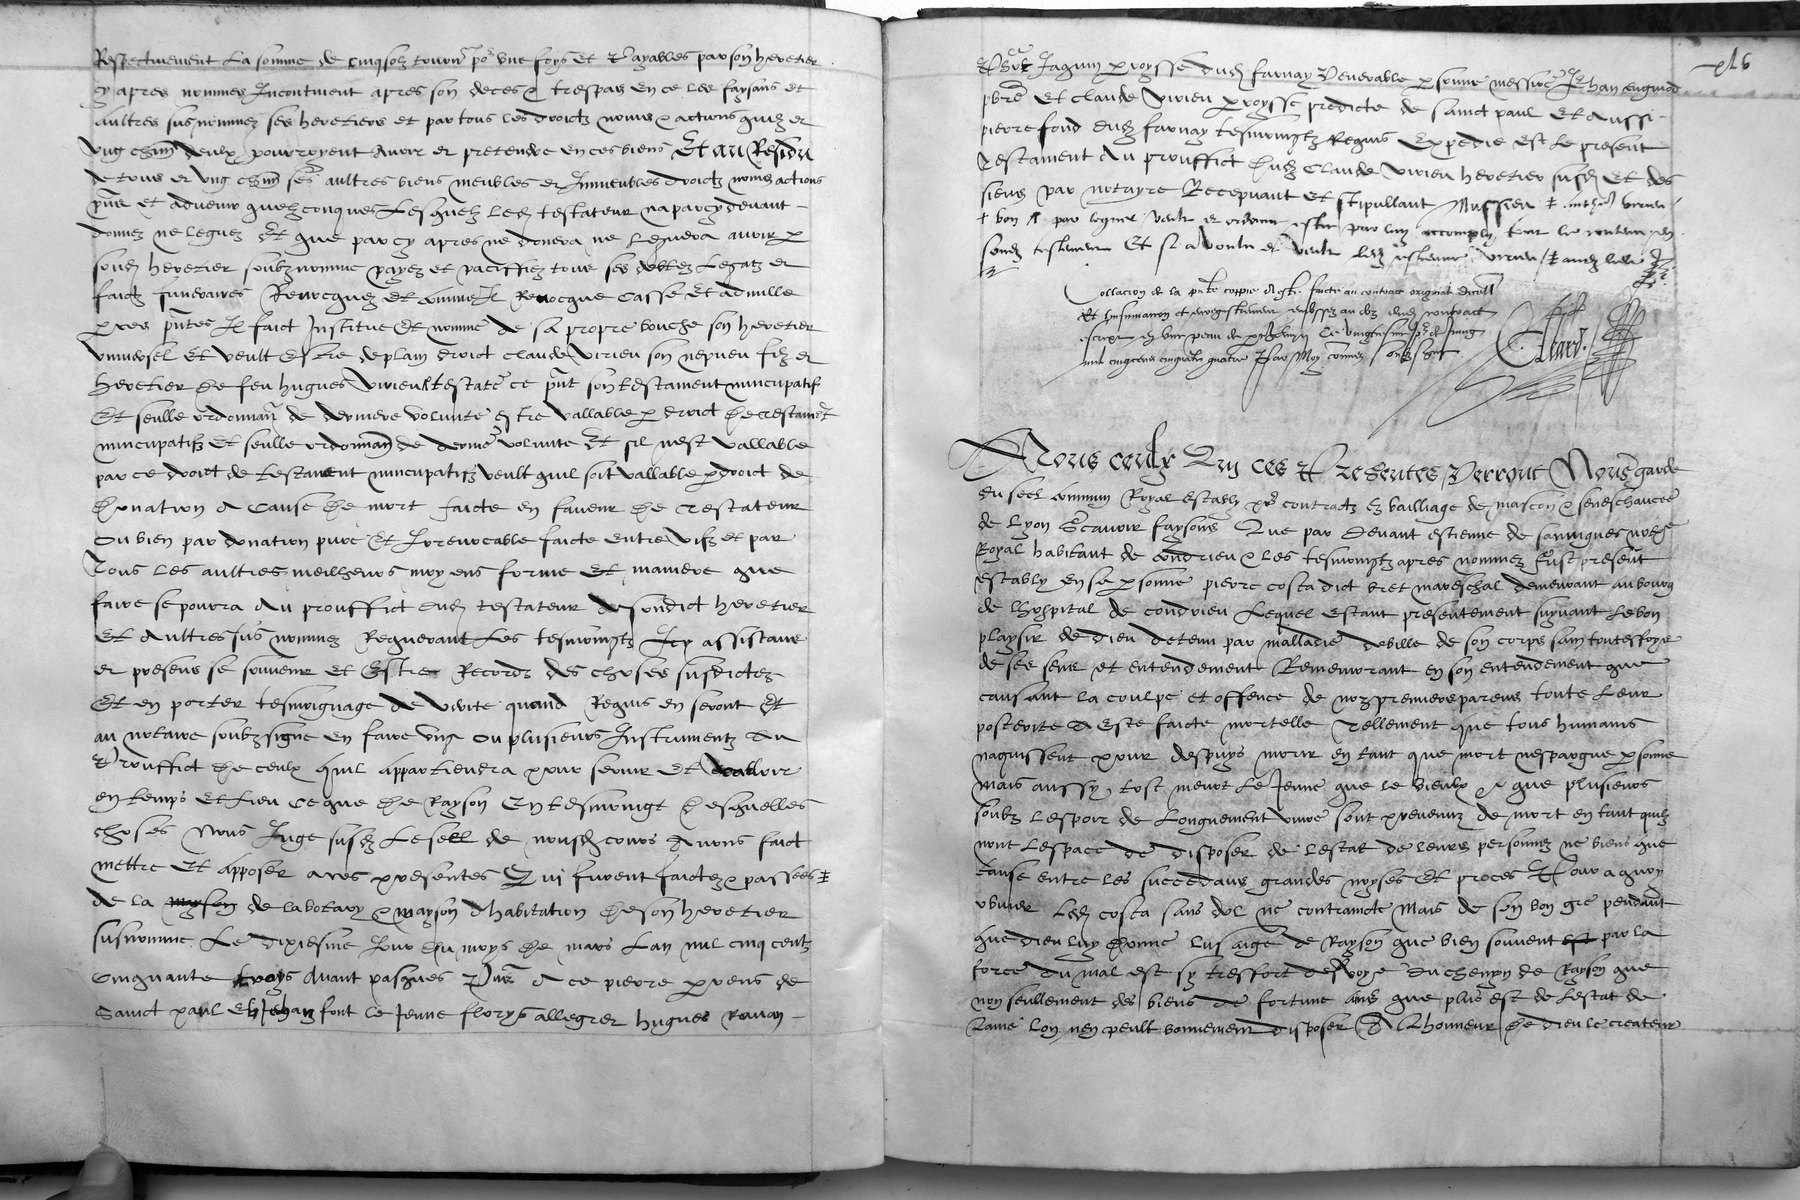 Respectivement la somme de cinq solz tourn po' une foys et payables par son heretier
cy apres nommez Incontinent apres son deces & trespas en ce les faysans et
aultres susnommez ses heretiers et par tous les droictz noms & actions quilz et
ung chun deulx pourroyent avoir et pretendre en ces biens Et au Residu
de tous et ung chun ses aultres biens meubles et Immeubles droictz noms actions
pns et advenir quelzconques Lesquelz led testateur na par cy devant
donnez ne leguez Et que par cy apres ne donera ne leguera avoir p
sond heretier soubznomme payez et paciffiez tous ses debtez legatz et
faictz funeraires Revocquez et comme Il Revocque casse et adnulle
p ces pntes Il faict Institue et nomme de sa propre bouche son heretier
universel et veult estre de plain droict claude virieu son nepveu filz et
heretier de feu hugues virieu testate ce pnt son testament nuncupatif
Et seulle ordonnan de derniere volunte estre vallable p droict de testament
nuncupatifz et seulle ordonnan de derniere volunte Et sil nest vallable
par ce droict de testament nuncupatifz veult quil soit vallable p droict de
donation a cause de mort faicte en faveur de testateur
ou bien par donation pure et Irrevocable faicte entre vifz et par
Tous les aultres meilheurs moyens forme et maniere que
faire se pourra Au prouffict dud testateur de sondict heretier
et aultres sus nommez Requerant Les tesmoingtz Icy assistans
et presens se souvenir et Estre Records des choses susdictes
Et en porter tesmoignage de verite quand Requis en seront Et
au notaire soubzsigne en faire ung ou plusieurs Instrumentz au
Prouffict de ceulx quil appartiendra pour servir et valloir
en temps et lieu ce que de Rayson En tesmoingt desquelles
choses Nous Juge susd Le seel de nousd cours Avons faict
mettre et apposer a ces presentes Qui furent faictez & passees
de la mayson de labotary & mayson dhabitation de son heretier
susnomme Le dixiesme Jour du moys de mars Lan mil cinq centz
cinquante troys Avant pasques Pns a ce pierre pvens de
Sainct paul et Jehan font le Jeune allegret hugues
Jaqum proysse dud farnay venerable psonne messire Jehan
pbre et claude virieu proysse predicte de sainct paul et Aussi
pierre fond dud farnay tesmoingtz Requis Expedie Est le present
Testament Au prouffict dud claude virieu heretier susd et des
siens par notayre Recepvant et stipullant
par veult et ordonne estre par luy accomply tout le contenu en
sond testament Et si a voulu et veult led testateur
Collacion de la pnte coppie a este faicte au contract original
Et Insinuation et enregistrement
mil cinq cens cinquante quatre Par Moy commis soubz sign
Nous ceulx Qui ces Presentes Verront Nous garde
du seel commun Royal estably pr contractz es bailliage de mascon & seneschaucee
de Lyon Scavoir faysons Que par Devant estienne de sainignes notre
Royal habitant de condrieu & les tesmoingtz apres nommez Fust present
estably en sa psonne pierre costa dict bret mareschal demeurant au bourg
de lhospital de condrieu Lequel Estant presentement suyvant le bon
playsir de dieu detenu par malladie debille de son corps sain toutesfoys
de ses sens et entendement Rememorant en son entendement que
causant la coulpe et offence de noz premiers parens toute leur
posterite a este faicte mortelle Tellement que tous humains
naquissent pour despuys morir en tant que mort nespargne psonne
mais aussy tost meurt le Jeune que le vieulx & que plusieurs
soubz lespoir de longuement vivre sont prevenuz de mort en tant quilz
nont lespace de disposer de lestat de leurs personnes ne biens que
cause entre les succedans grandes noyses et proces Pour a quoy
obvier Led costa sans dol ne contraincte Mais de son bon gre pendant
que dieu luy donne lusaige de Rayson que bien souvent est par la
force du mal est sy tresfort desvoye du chemyn de Rayson que
non seullement des biens de fortune mais que plus est de lestat de
lame lon nen peult bonnement disposer A Lhonneur de dieu le createur